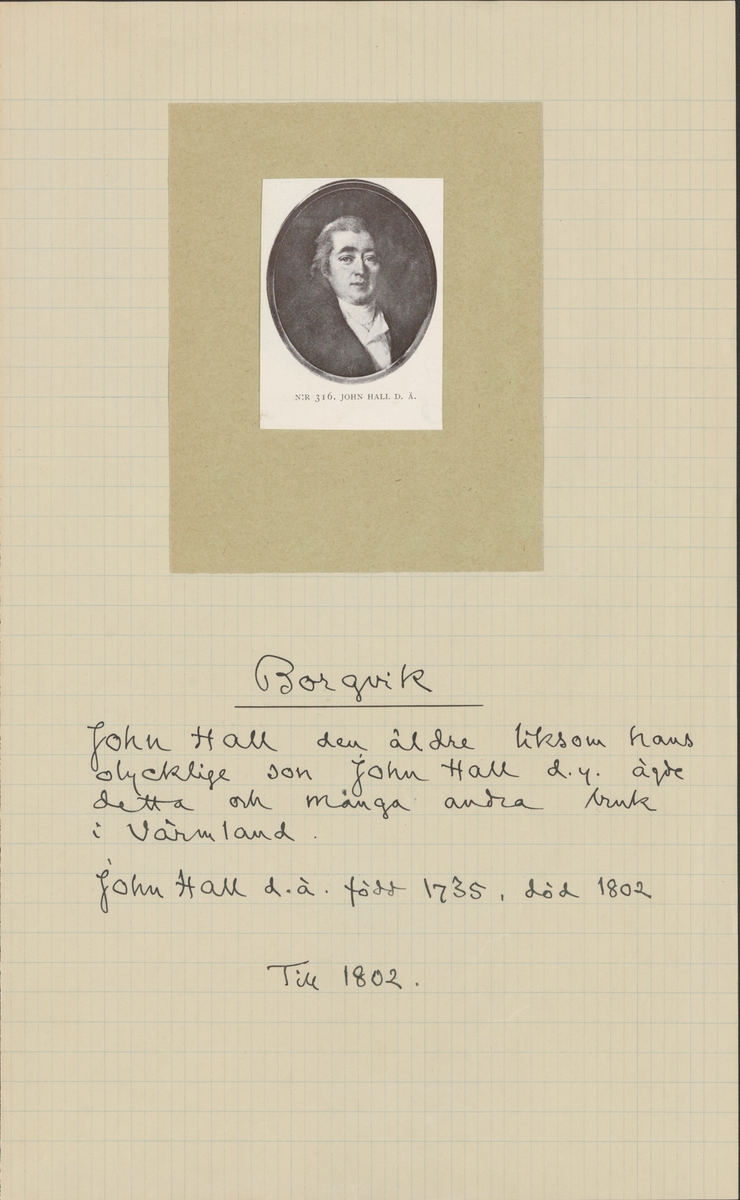 N:R 316. JOHN HALL D. Ä.
Borgvik
John Hall den äldre liksom hans
olycklige son John Hall d.y. ägde
detta och många andra bruk
i Värmland.
John Hall d.ä. född 1735, död 1802
Till 1802.